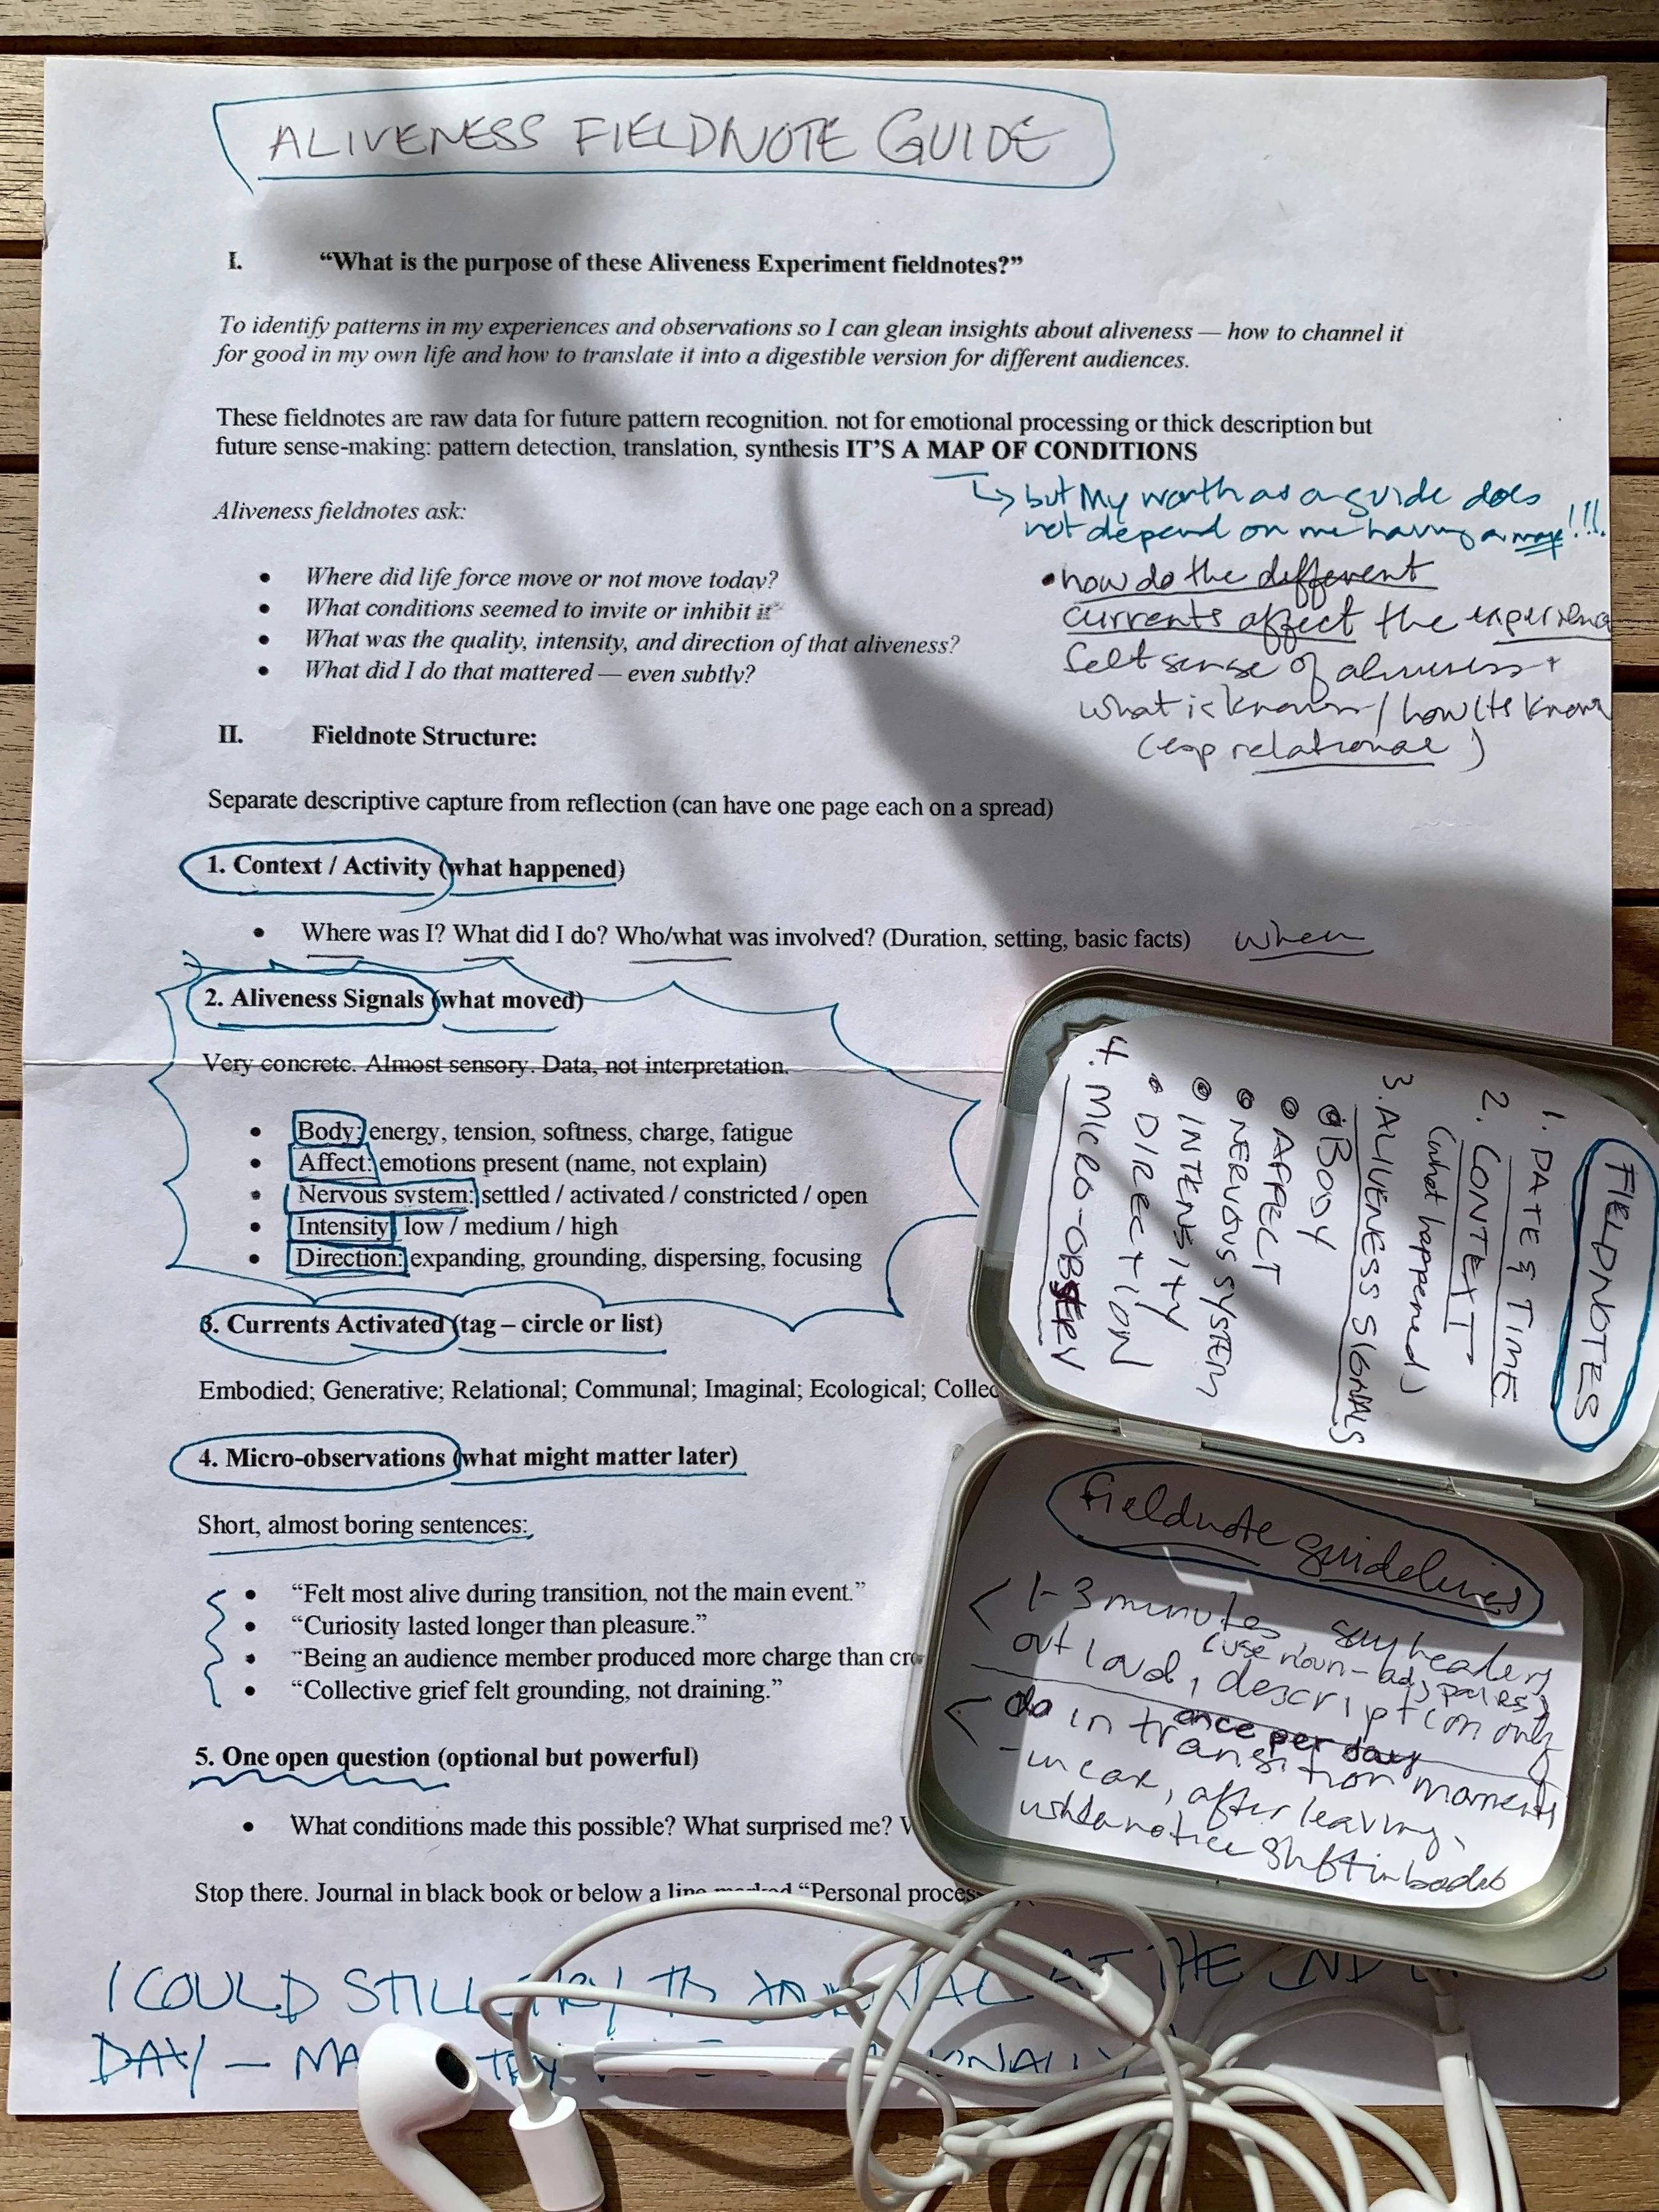 ALIVENESS FIELDNOTE GUIDE
I. “What is the purpose of these Aliveness Experiment fieldnotes?”
To identify patterns in my experiences and observations so I can glean insights about aliveness — how to channel it
for good in my own life and how to translate it into a digestible version for different audiences.
These fieldnotes are raw data for future pattern recognition. not for emotional processing or thick description but
future sense-making: pattern detection, translation, synthesis IT’S A MAP OF CONDITIONS
↳ but My worth as a guide does
not depend on me having a map!!!
Aliveness fieldnotes ask:
• Where did life force move or not move today?
• What conditions seemed to invite or inhibit it
• What was the quality, intensity, and direction of that aliveness?
• What did I do that mattered — even subtly?
• how do the different
currents affect the
felt sense of aliveness +
what is known / how its known
(esp relational)
II. Fieldnote Structure:
Separate descriptive capture from reflection (can have one page each on a spread)
1. Context / Activity (what happened)
• Where was I? What did I do? Who/what was involved? (Duration, setting, basic facts) when
2. Aliveness Signals (what moved)
Very concrete. Almost sensory. Data, not interpretation.
• Body: energy, tension, softness, charge, fatigue
• Affect: emotions present (name, not explain)
• Nervous system: settled / activated / constricted / open
• Intensity: low / medium / high
• Direction: expanding, grounding, dispersing, focusing
3. Currents Activated (tag – circle or list)
Embodied; Generative; Relational; Communal; Imaginal; Ecological;
4. Micro-observations (what might matter later)
Short, almost boring sentences:
• “Felt most alive during transition, not the main event.”
• “Curiosity lasted longer than pleasure.”
• “Being an audience member produced more charge than
• “Collective grief felt grounding, not draining.”
5. One open question (optional but powerful)
• What conditions made this possible? What surprised me?
Stop there. Journal in black book or below a line marked “Personal
I COULD STILL TRY TO JOURNAL AT THE
DAY — TRY
FIELDNOTES
1. DATE & TIME
2. CONTEXT
(what happened)
3. ALIVENESS SIGNALS
• BODY
• AFFECT
• NERVOUS SYSTEM
• INTENSITY
• DIRECTION
4. MICRO-OBSERV
fieldnote guidelines
< 1-3 minutes say headers
(use noun-adj pairs)
out loud, description only
once per day
< do in transition moments
- in car, after leaving,
notice shift in body